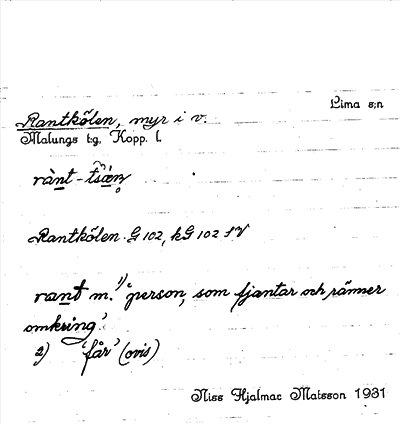 Lima s:n
Rantkölen, myr i v.
Malungs tg, Kopp. l.
rànt-tsö́n̥
Rantkölen G 102, kG 102 SV
rant m. 1) 'person, som fjantar och ränner
omkring'
2) 'får' (ovis)
Niss Hjalmar Matsson 1931